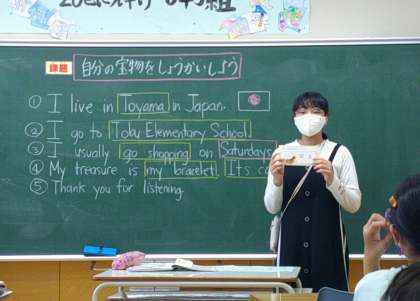 課題 自分の宝物をしょうかいしよう
① I live in Toyama in Japan.
② I go to Tobu Elementary School.
③ I usually go shopping on Saturdays
④ My treasure is my bracelet. It's
⑤ Thank you for listening.